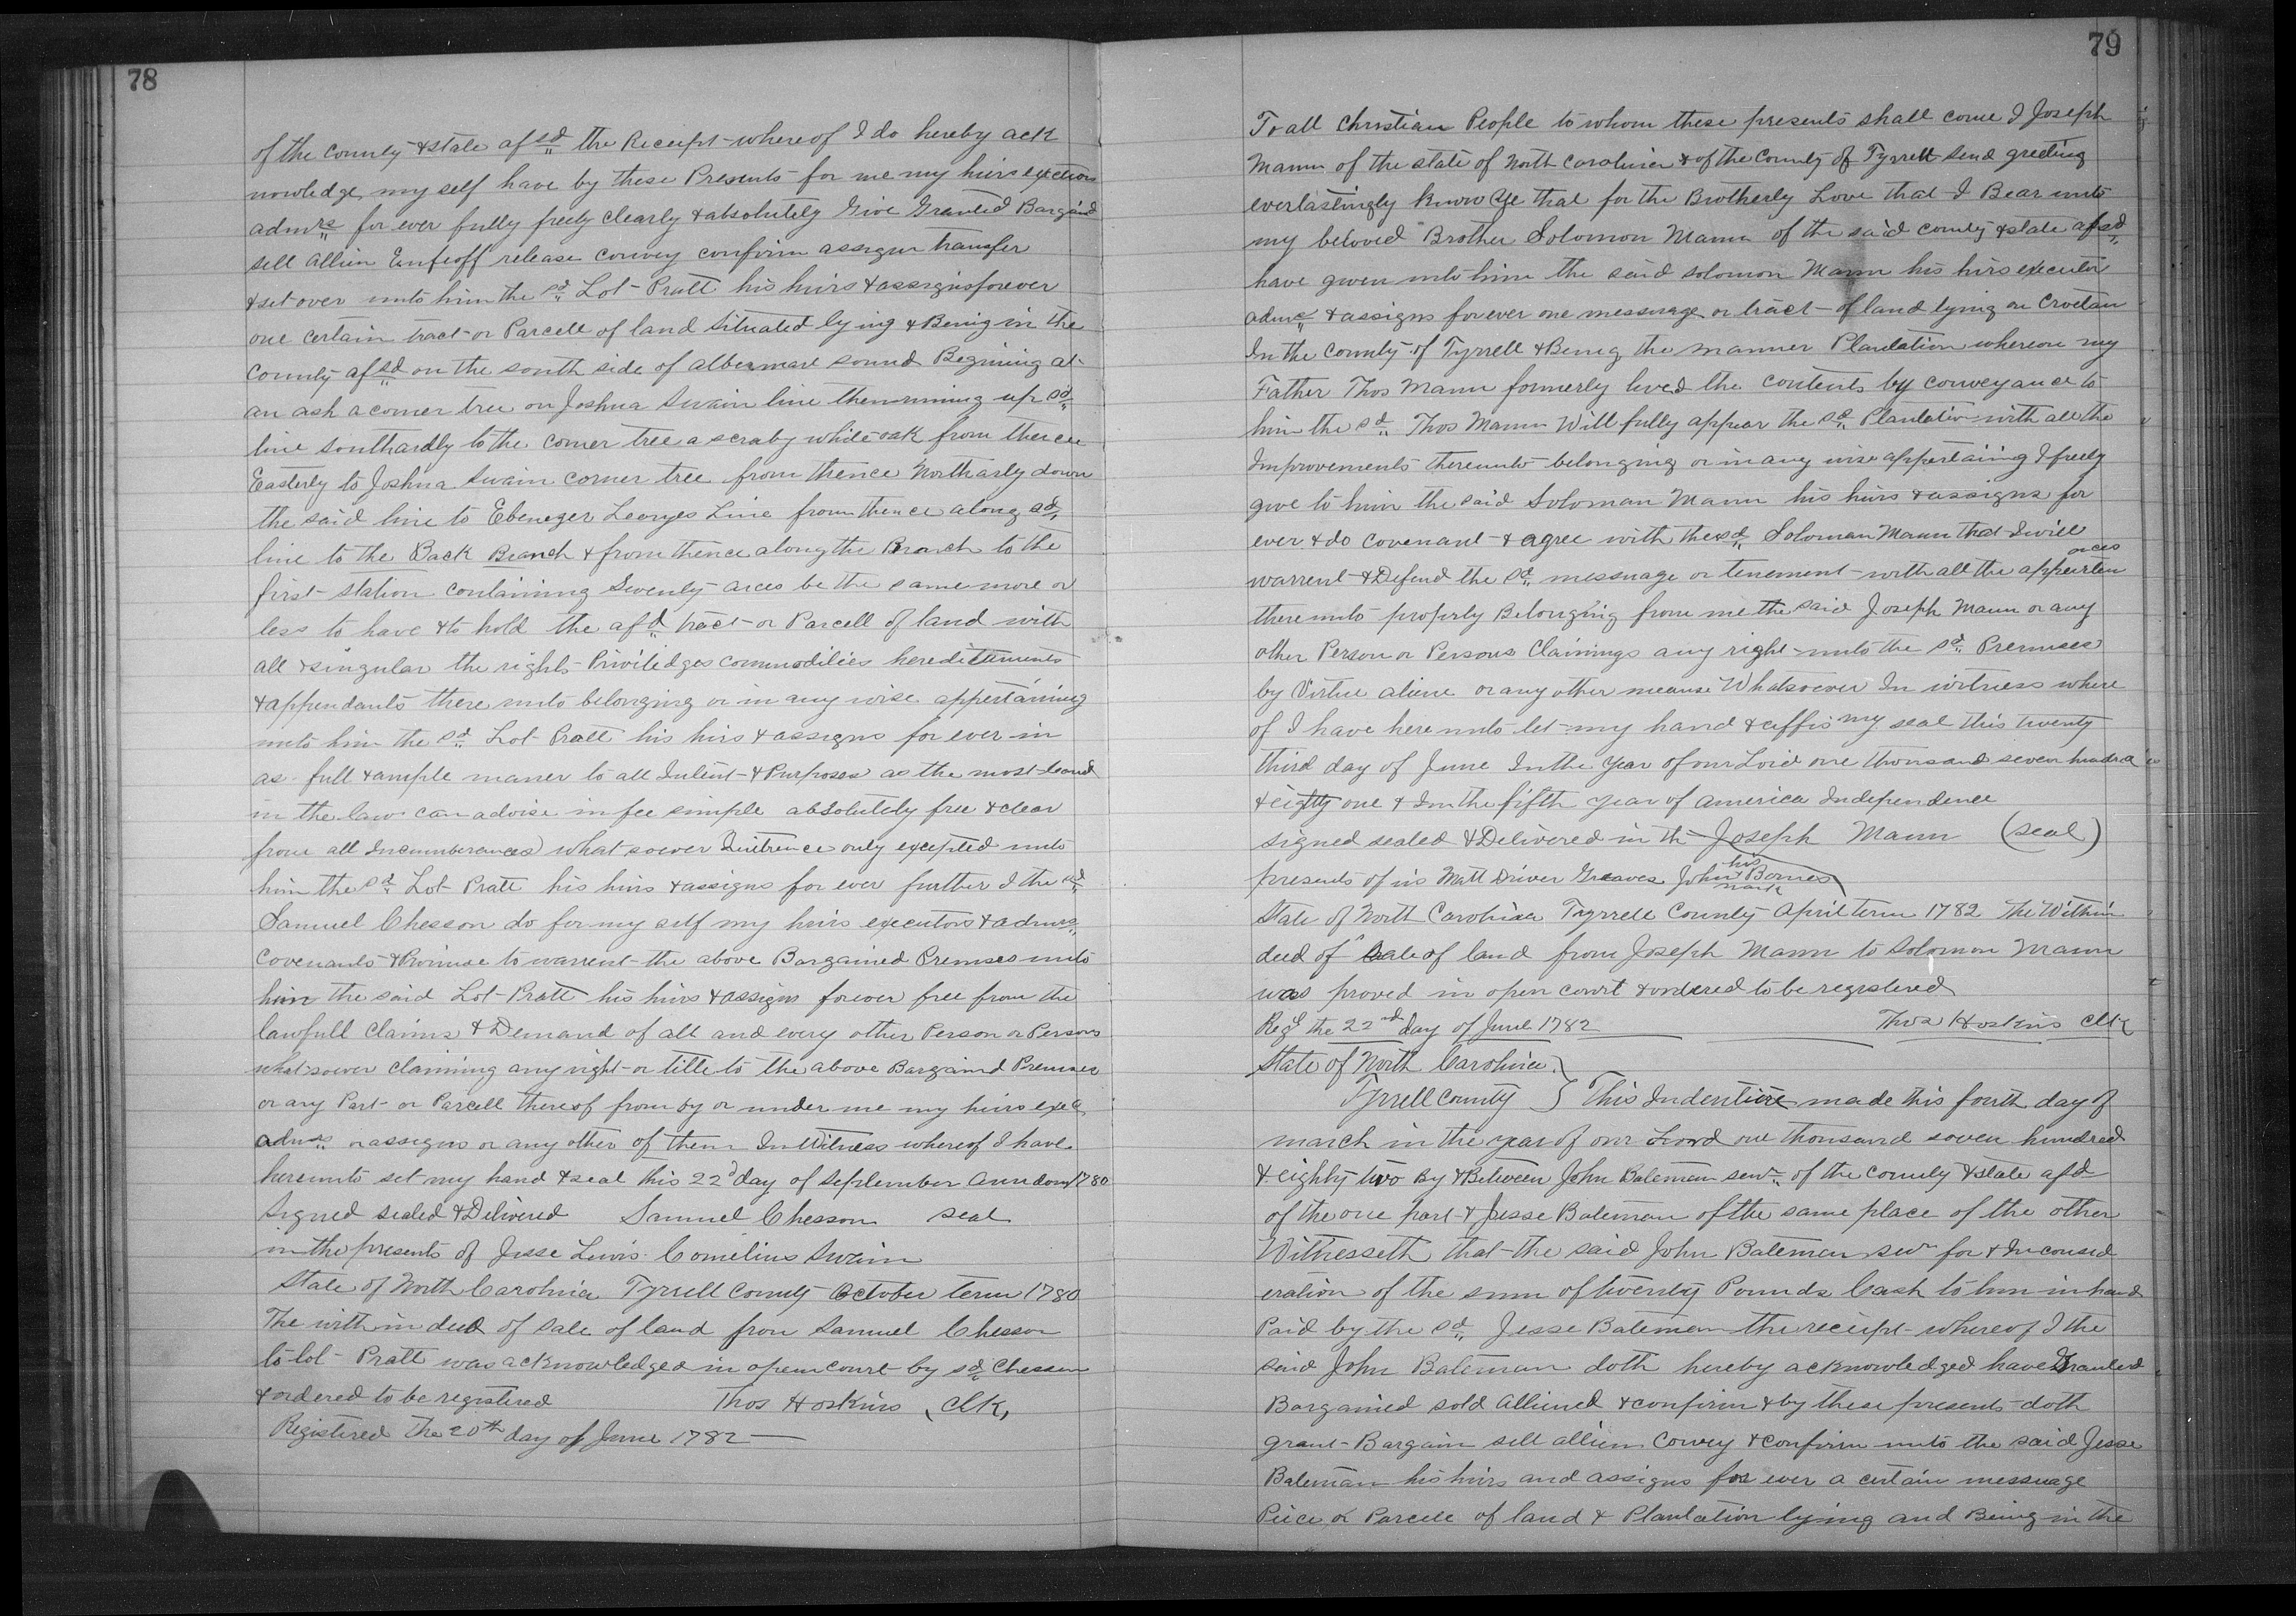 78
of the County & state afsd the Receipt whereof I do hereby ack
nowledge my self have by these Presents for me my heirs exectors
admrs for ever fully freely clearly & absolutely Give Granted Bargaind
sell Allien Enfeoff release convey confirm assign transfer
& set over unto him the sd Lot Pratt his heirs & assigns forever
one certain tract or Parcell of land Situated lying & Being in the
County afsd on the south side of albermarl sound Begining at
an ash a corner tree on Joshua Swain line then runing up sd
line southardly to the corner tree a scraby white oak from thence
Easterly to Joshua Swain corner tree from thence Northarly down
the said line to Ebenezer Leorges Line from thence along sd
line to the Back Branch & from thence along the Branch to the
first station containing Seventy arces be the same more or
less to have & to hold the afd tract or Parcell of land with
all & singular the rights Priviledges commodities heredittiments
& appendants there unto belonging or in any wise appertaining
unto him the sd Lot Pratt his heirs & assigns for ever in
as full & ample maner to all Intent & Purposes as the most learnd
in the law can advise in fee simple absolutely free & clear
from all Incumberances what soever Quitrence only excepted unto
him the sd Lot Pratt his heirs & assigns for ever further I the sd
Samuel Chesson do for my self my heirs executors & admrs
Covenants & Promise to warrent the above Bargained Premises unto
him the said Lot Pratt his heirs & assigns forever free from the
lawfull Claims & Demand of all and every other Person or Persons
whatsoever claiming any right or title to the above Bargaind Premises
or any Part or Parcell thereof from by or under me my heirs exec
admrs or assigns or any other of them In Witness whereof I have
hereunto set my hand & seal this 22d day of September Anndom 1780
Signed sealed & Delivered Samuel Chesson seal
in the presents of Jesse Lewis Cornelius Swain
State of North Carolina Tyrrell County October term 1780
The with in deed of Sale of land from Samuel Chesson
to Lot Pratt was acknowledged in open court by sd Chesson
& ordered to be registered Thos Hoskins Clk,
Registered The 20th day of June 1782
79
To all Christian People to whom these presents shall come I Joseph
Mann of the state of North Carolina & of the County of Tyrrell send greeting
everlastingly know Ye that for the Brotherly Love that I Bear unto
my beloved Brother Solomon Mann of the said county & state afsd
have given unto him the said Solomon Mann his hirs executor
admrs & assigns for ever one messuage or tract of land lying on Croetan
In the County of Tyrrell & Being the manner Plantation whereon my
Father Thos Mann formerly lived the contents by conveyance to
him the sd Thos Mann Will fully appear the sd Plantation with all the
Improvements thereunto belonging or in any wise appertaing I freely
give to him the said Soloman Mann his heirs & assigns for
ever & do covenant & agree with the sd Soloman Mann that I will
warrent & Defend the sd messuage or tenement with all the appeurten
ances
there unto properly Belonging from me the said Joseph Mann or any
other Person or Persons Claimings any right unto the sd Premises
by Virtue aliene or any other meanse Whatsoever In witness where
of I have here unto let my hand & affis my seal this twenty
third day of June In the Year of our Lord one thousand seven hundred
& eighty one & Im the fifth year of america Independence
signed sealed & Delivered in the Joseph Mann (seal)
presents of us Matt Driver Greaves John his mark Barnes
State of North Carolina Tyrrell County April term 1782 The Within
deed of Sale of land from Joseph Mann to Solomon Mann
was proved in open court & ordered to be registered
Regd the 22nd day of June 1782 Thos Hoskins Clk
State of North Carolina
Tyrrell County } This Indenture made this fourth day of
march in the year of our Lord one thousand seven hundred
& eighty two By & Between John Bateman senr of the county & state afd
of the one part & Jesse Bateman of the same place of the other
Witnesseth that the said John Bateman senr for & In consid
eration of the sum of twenty Pounds Cash to him in hand
Paid by the sd Jesse Bateman the receipt whereof I the
said John Bateman doth hereby acknowledged have Granted
Bargained sold Alliened & confirm & by these presents doth
grant Bargain sell allien Convey & confirm unto the said Jesse
Bateman his heirs and assigns for ever a certain messuage
Piece or Parcell of land & Plantation lying and Being in the